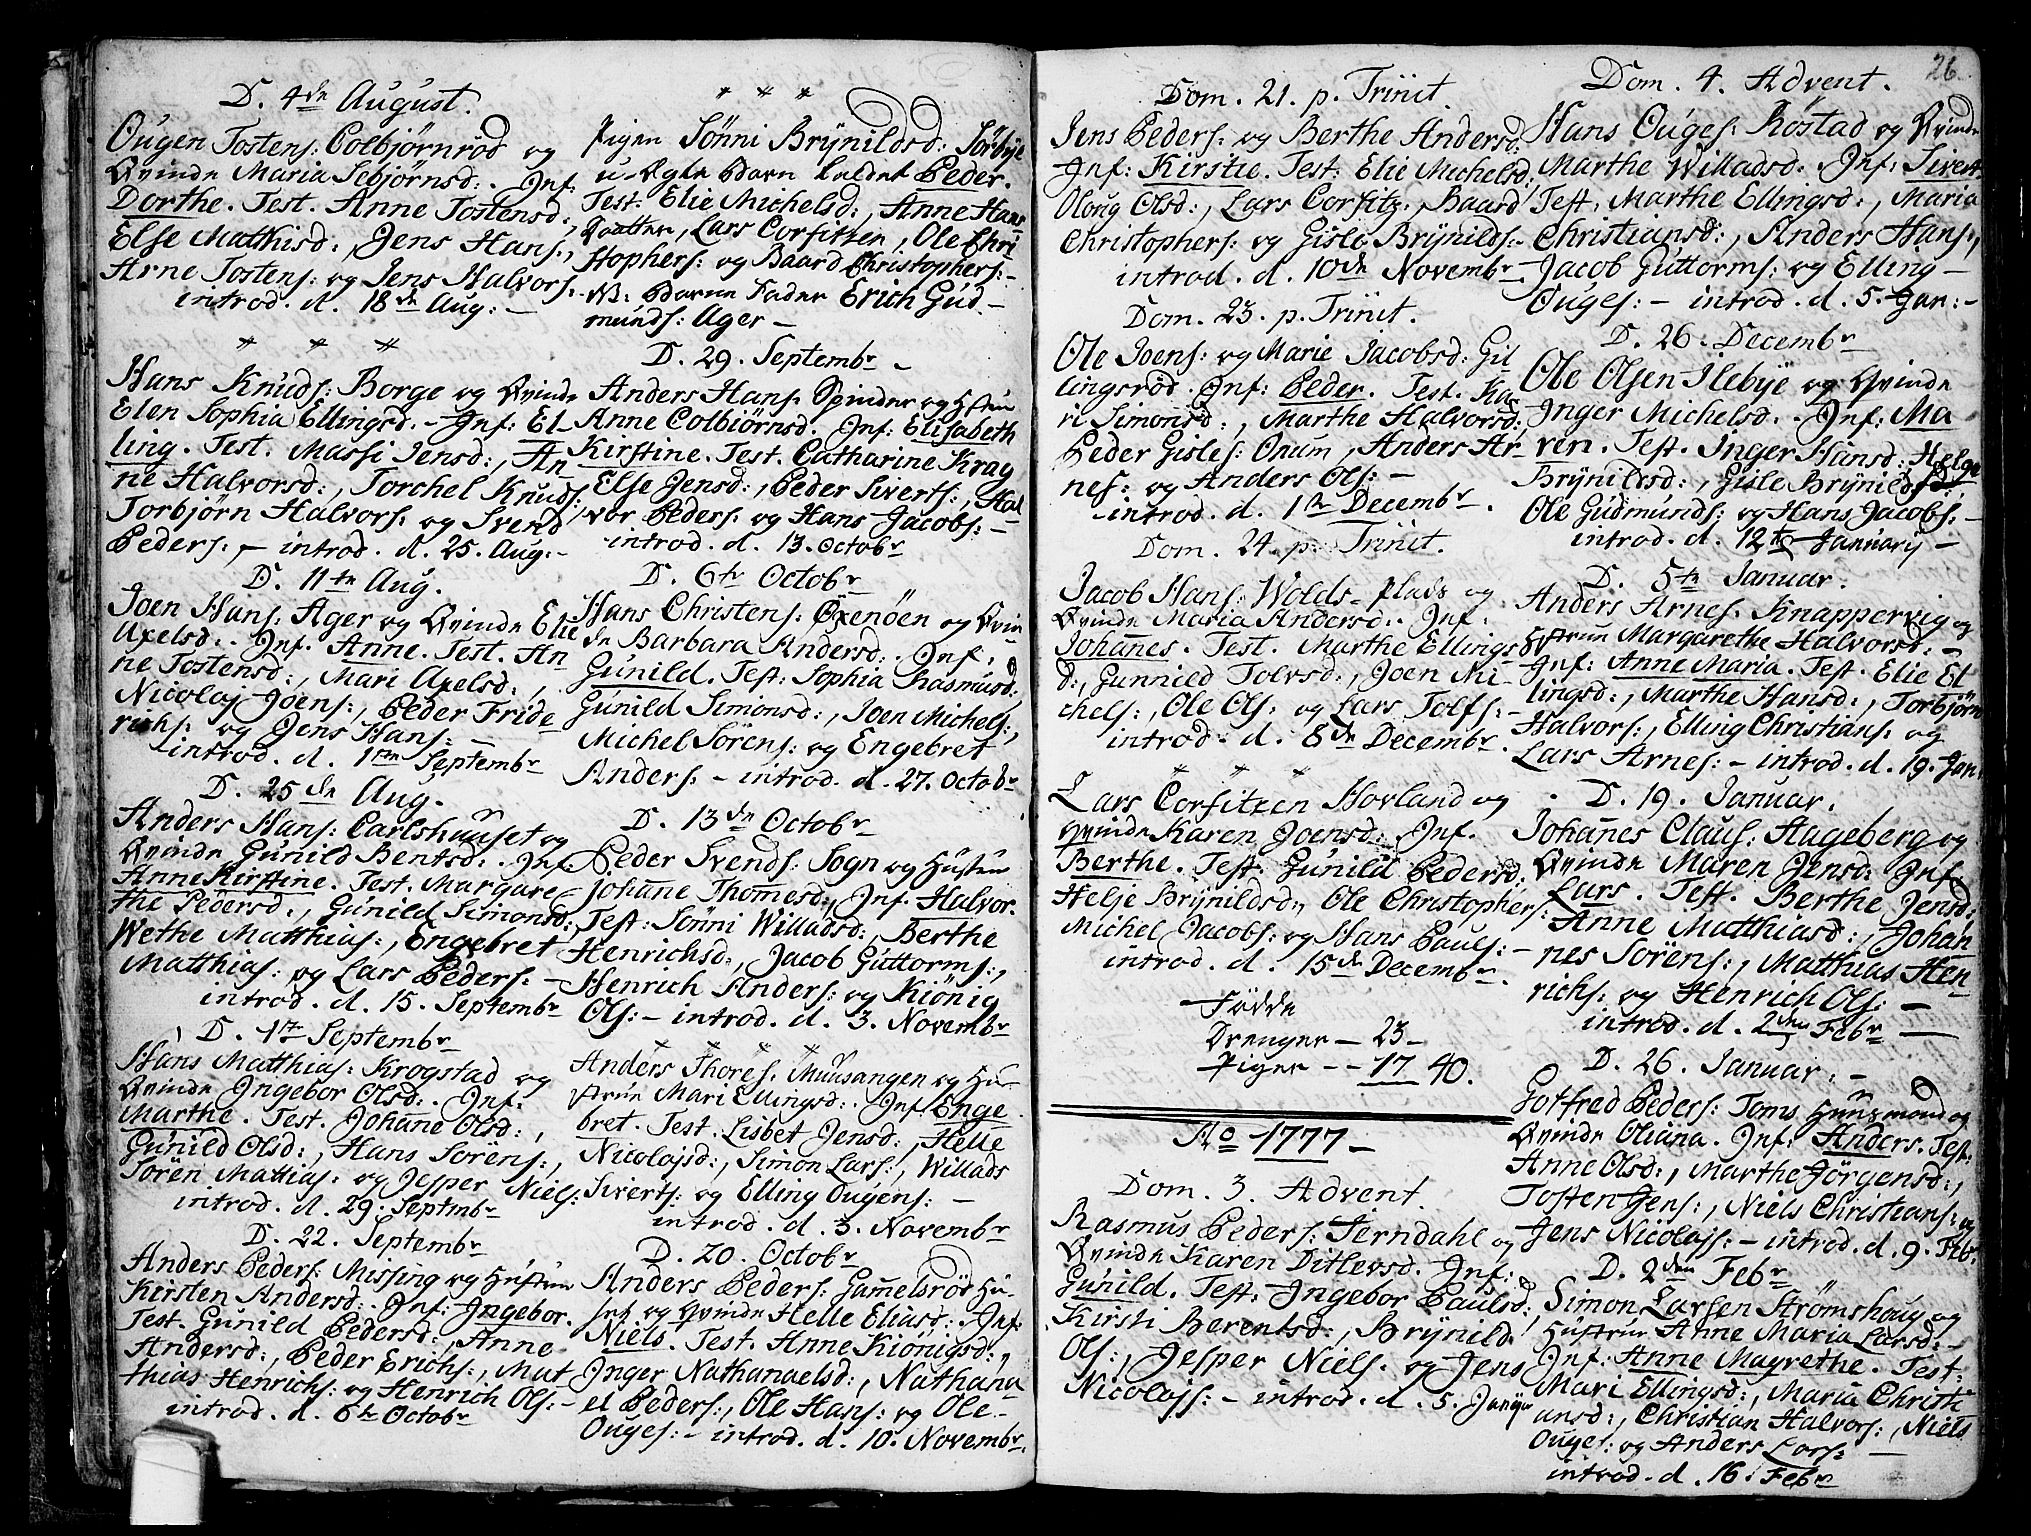 D. 4de August.
Ougen Tostens: Colbjørnrød og
Qvinde Maria Sebjørnsd:. Inf:
Dorthe. Test. Anne Tostensd:,
Else Mathisd:, Jens Hans:,
Arne Tostens: og Jens Halvors:
introd. d. 18de Aug: -
* * *
Hans Knuds: Borge og Qvinde
Elen Sophia Ellingsd. - Inf: El-
ling. Test. Massi Jensd:, An
ne Halvorsd:, Torchel Knuds:
Torbjørn Halvors: og Svend
Peders:, - introd. d. 25. Aug: -
D. 11te Aug.
Joen Hans: Ager og Qvinde Elie
Axelsd:. Inf. Anne. Test. An
ne Tostensd:, Mari Axelsd:,
Nicolaj Joens:, Peder Fride
richs: og Jens Hans: -
introd. d. 1ste Septembr
D. 25de Aug.
Anders Hans: Carlshuuset og
Qvinde Gunild Bentsd:. Inf:
Anne Kirstine. Test. Margare
the Pedersd:, Gunild Simonsd:
Wethe Matthias:, Engebret
Matthias: og Lars Peders: -
introd. d. 15. Septembr
D. 1te Septembr
Hans Matthias: Krogstad og
Qvinde Ingebor Olsd:. Inf:
Marthe. Test. Johane Olsd:,
Gunild Olsd:, Hans Sorens:,
Sören Mathias: og Jesper Niels:
introd. d. 29. Septmbr
D. 22. Septembr
Anders Peders: Missing og Hustru
Kirsten Andersd:. Inf: Ingebor.
Test. Gunild Pedersd:, Anne
Andersd:, Peder Erichs:, Mat
thias Henrichs: og Henrich Ols: -
introd. d. 6te Octobr
* * *
Pigen Sønni Brynildsd: Sørbye
u-ægte Barn kaldet Peder.
Test: Elie Michelsd:, Anne Hans
Daatter, Lars Corfitzen, Ole Chri
stophers: og Baard Christophers: -
NB: Barne Fader Erich Gud-
munds: Ager -
D. 29. Septembr -
Anders Hans: Spinder og Hstru
Anne Colbiørnsd. Inf: Elisabeth
Kirstine. Test. Catharine Krag
Else Jensd:, Peder Siverts:, Hal-
vor Peders: og Hans Jacobs: -
introd. d. 13. Octobr
D. 6te Octobr
Hans Christens: Oxenöen og Qvin
de Barbara Andersd:. Inf:
Gunild. Test: Sophia Rasmusd:
Gunild Simonsd:, Joen Michels:,
Michel Sörens: og Engebret
Anders: - introd. d. 27. Octobr
D. 13de Octobr
Peder Svends: Sogn og Hustru
Johane Thomesd:, Inf. Halvor.
Test: Sönni Willadsd:, Berthe
Henrichsd:, Jacob Guttorms:,
Henrich Anders: og Kiönig
Ols: - introd. d. 3. Novembr
* * * *
Anders Thores: Muusangen og Hu-
strue Mari Ellingsd:. Inf. Enge
bret. Test. Lisbet Jensd:, Helle
Nicolajsd:, Simon Lars:, Willads
Siverts: og Elling Ougens: -
introd. d. 3. Novembr
D. 20. Octobr
Anders Peders: Gamelsröd Hu-
set og Qvinde Helle Eliasd:. Inf:
Niels. Test. Anne Kiönigsd:,
Inger Nathanaelsd:, Nathana-
el Peders:, Ole Hans: og Ole
Ouges: - introd. d. 10. Novembr.
Dom. 21. p. Trinit.
Jens Peders: og Berthe Andersd:
Inf: Kirstie. Test: Elie Michelsd:,
Oloug Olsd:, Lars Corfitz., Baard
Christophers: og Gisle Brynilds: -
introd. d. 10de Novembr
Dom. 23. p. Trinit.
Ole Joens: og Marie Jacobsd: Gil
lingsrød. Inf: Peder. Test. Ka
ri Simonsd:, Marthe Halvorsd:
Peder Gisles: Onum, Anders Ar-
nes: og Anders Ols: -
introd. d. 1te Decembr.
Dom. 24. p. Trinit.
Jacob Hans: Wolds-plads og
Qvinde Maria Andersd:. Inf:
Johanes. Test. Marthe Ellings
d:, Gunnied Tolvsd:, Joen Mi-
chels:, Ole Ols: og Lars Tolfs: -
introd. d. 8de Decembr.
* * *
Lars Corfitzen Hovland og
Qvinde Karen Joensd:. Inf.
Berthe. Test: Gunild Pedersd:
Helje Brynildsd:, Ole Christophers:
Michel Jacobs: og Hans Pauls: -
introd. d. 15de Decembr.
Fødde
Drenger - 23 -
Piger - - 17 40.
Ao 1777 -
Dom. 3. Advent.
Rasmus Peders: Jerndahl og
Qvinde Karen Ditlevsd. Inf:
Gunild. Test: Ingebor Paulsd:,
Kirsti Berentsd:, Brynild
Ols:, Jesper Niels. og Jens
Nicolajs: - introd. d. 5. Janr
26.
Dom. 4. Advent.
Hans Ouges: Röstad og Qvinde
Marthe Willadsd:. Inf: Sivert.
Test. Marthe Ellingsd:, Maria
Christiansd:, Anders Hans:,
Jacob Guttorms: og Elling -
Ouges: - introd. d. 5. Jan: -
D. 26. Decembr
Ole Olsen Ilebye og Qvinde
Inger Michelsd. Inf: Ma
ren. Test. Inger Hansd: Helge
Brynildsd:, Gisle Brynilds:,
Ole Gudmunds: og Hans Jacobs: -
introd. d. 12te January -
D. 5te Januar.
Anders Arnes. Knappervig og
Hstrue Margarethe Halvorsd: -
Inf: Anne Maria. Test. Elie El
lingsd:, Marthe Hansd:, Torbjörn
Halvors:, Elling Christians: og
Lars Arnes: - introd. d. 19. Jan.
D. 19. Januar.
Johanes Claus: Hageberg og
Qvinde Maren Jensd: Inf:
Lars. Test. Berthe Jensd:
Anne Matthiasd:, Johan
nes Sörens:, Matthias Hen
richs: og Henrich Ols: -
introd. d. 2den Febr -
D. 26. Januar. -
Gotfred Peders: Toms Huusmand og
Qvinde Oliana. Inf: Anders. Test:
Anne Olsd:, Marthe Jörgensd:,
Tosten Jens:, Niels Christians: og
Jens Nicolajs: - introd. d. 9. Febr
D. 2den Febr
Simon Larsen Strömshaug og
Hustrue Anne Maria Larsd: -
Inf: Anne Magrethe. Test:
Mari Ellingsd:, Maria Christi
ansd:, Christian Halvors:, Niels
Ouges: og Anders Lars: -
introd. d. 16. Febr